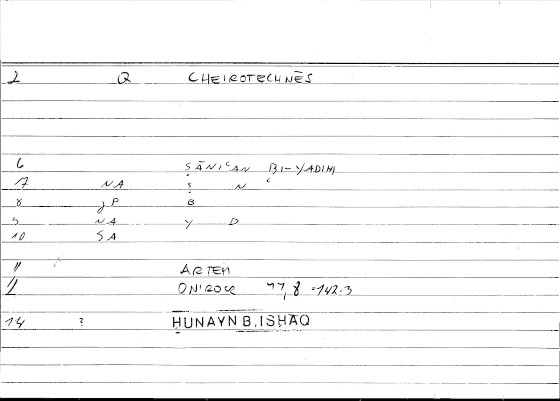 2 Q CHEIROTECHNĒS
6 ṢĀNIʿAN BI-YADIHI
7 NA Ṣ N ʿ
8 JP B
9 NA Y D
10 SA
11 ARTEM
ONIROCR 77,8 = 142.3
14 ? ḤUNAYN B. ISḤAQ